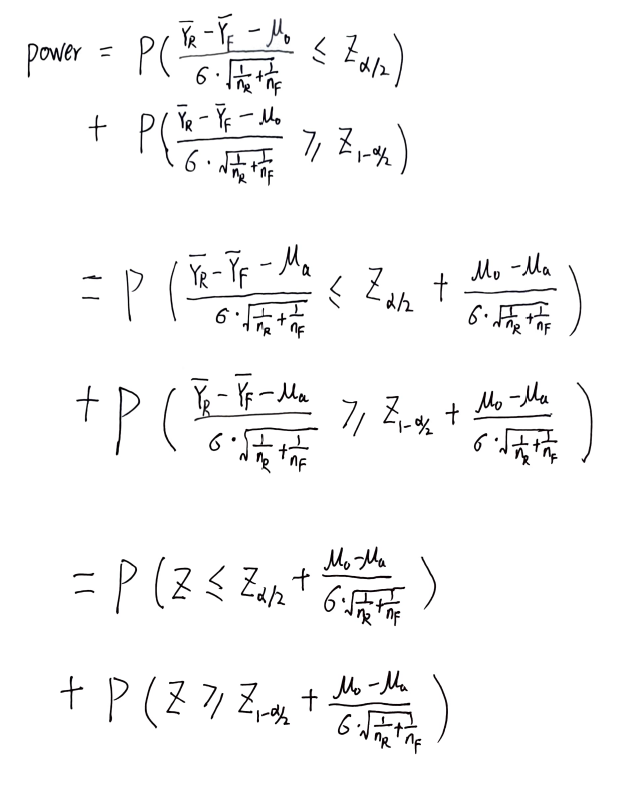 power = P( (Ȳ_R - Ȳ_F - μ₀) / (σ·√(1/n_R + 1/n_F)) ≤ Z_{α/2} )
+ P( (Ȳ_R - Ȳ_F - μ₀) / (σ·√(1/n_R + 1/n_F)) ≥ Z_{1-α/2} )
= P( (Ȳ_R - Ȳ_F - μ_a) / (σ·√(1/n_R + 1/n_F)) ≤ Z_{α/2} + (μ₀ - μ_a) / (σ·√(1/n_R + 1/n_F)) )
+ P( (Ȳ_R - Ȳ_F - μ_a) / (σ·√(1/n_R + 1/n_F)) ≥ Z_{1-α/2} + (μ₀ - μ_a) / (σ·√(1/n_R + 1/n_F)) )
= P( Z ≤ Z_{α/2} + (μ₀ - μ_a) / (σ·√(1/n_R + 1/n_F)) )
+ P( Z ≥ Z_{1-α/2} + (μ₀ - μ_a) / (σ·√(1/n_R + 1/n_F)) )